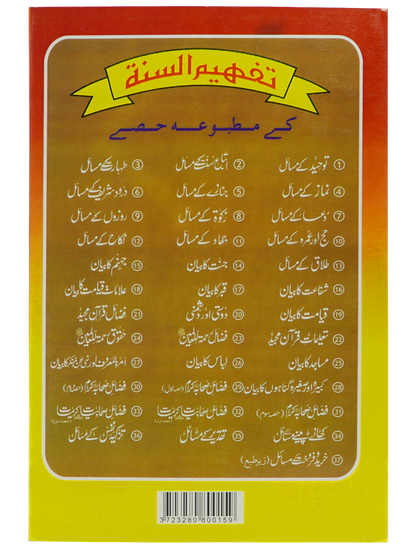 تفہیم السنۃ
کے مطبوعہ حصے
① توحید کے مسائل ② اتباع سنت کے مسائل ③ طہارت کے مسائل
④ نماز کے مسائل ⑤ جنازے کے مسائل ⑥ درود شریف کے مسائل
⑦ دعا کے مسائل ⑧ زکوٰۃ کے مسائل ⑨ روزوں کے مسائل
⑩ حج اور عمرہ کے مسائل ⑪ جہاد کے مسائل ⑫ نکاح کے مسائل
⑬ طلاق کے مسائل ⑭ جنت کا بیان ⑮ جہنم کا بیان
⑯ شفاعت کا بیان ⑰ قبر کا بیان ⑱ علامات قیامت کا بیان
⑲ قیامت کا بیان ⑳ دوستی اور دشمنی ㉑ فضائل قرآن مجید
㉒ تعلیمات قرآن مجید ㉓ فضائل رحمۃ للعالمین ㉔ حقوق رحمۃ للعالمین
㉕ مساجد کا بیان ㉖ لباس کا بیان ㉗ امر بالمعروف اور نہی عن المنکر کا بیان
㉘ کبیرہ اور صغیرہ گناہوں کا بیان ㉙ فضائل صحابہ کرام (حصہ اول) ㉚ فضائل صحابہ کرام (حصہ دوم)
㉛ فضائل صحابہ کرام (حصہ سوم) ㉜ فضائل صحابیات ㉝ فضائل صحابیات
㉞ کھانے پینے کے مسائل ㉟ تقدیر کے مسائل ㊱ تزکیہ نفس کے مسائل
㊲ خرید و فروخت کے مسائل (زیر طبع)
3723280800159